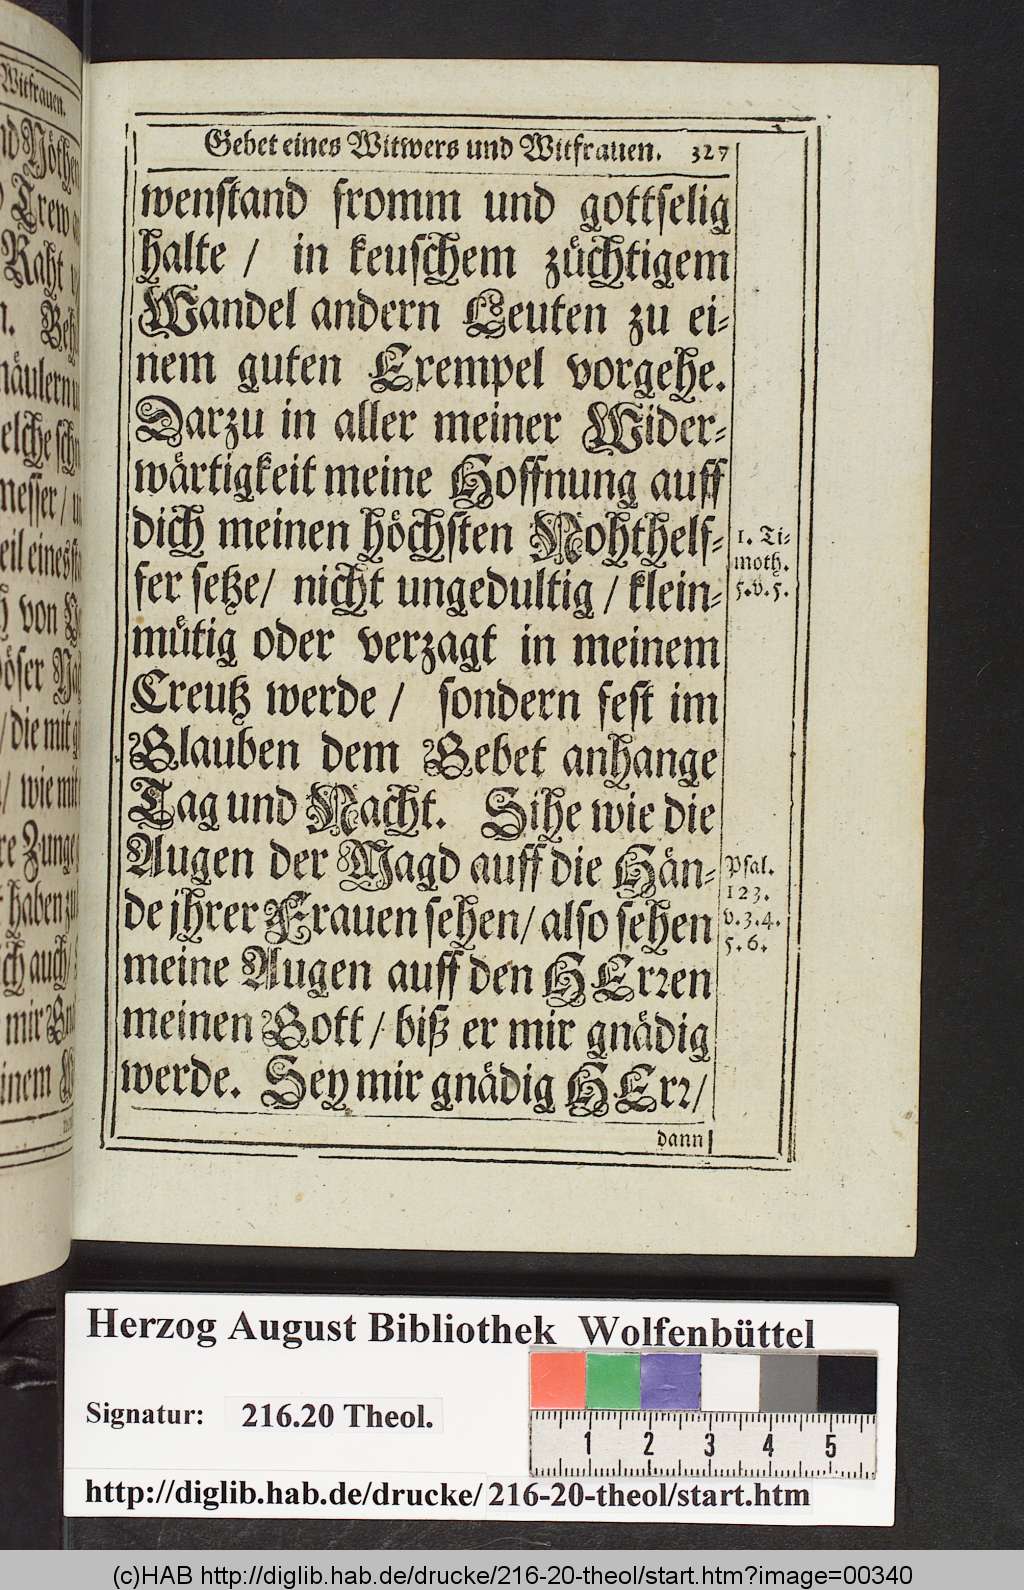 Witfrauen.
Gebet eines Witwers und Witfrauen. 327
wenstand fromm und gottselig
halte / in keuschem züchtigem
Wandel andern Leuten zu ei-
nem guten Exempel vorgehe.
Darzu in aller meiner Wider-
wärtigkeit meine Hoffnung auff
dich meinen höchsten Nohthelf-
fer setze / nicht ungedultig / klein-
mütig oder verzagt in meinem
Creutz werde / sondern fest im
Glauben dem Gebet anhange
Tag und Nacht. Sihe wie die
Augen der Magd auff die Hän-
de jhrer Frauen sehen / also sehen
meine Augen auff den HErren
meinen Gott / biß er mir gnädig
werde. Sey mir gnädig HErr /
dann
1. Ti-
moth.
5. v. 5.
Psal.
123.
v. 3. 4.
5. 6.
Herzog August Bibliothek Wolfenbüttel
Signatur: 216.20 Theol.
1 2 3 4 5
http://diglib.hab.de/drucke/216-20-theol/start.htm
(c)HAB http://diglib.hab.de/drucke/216-20-theol/start.htm?image=00340